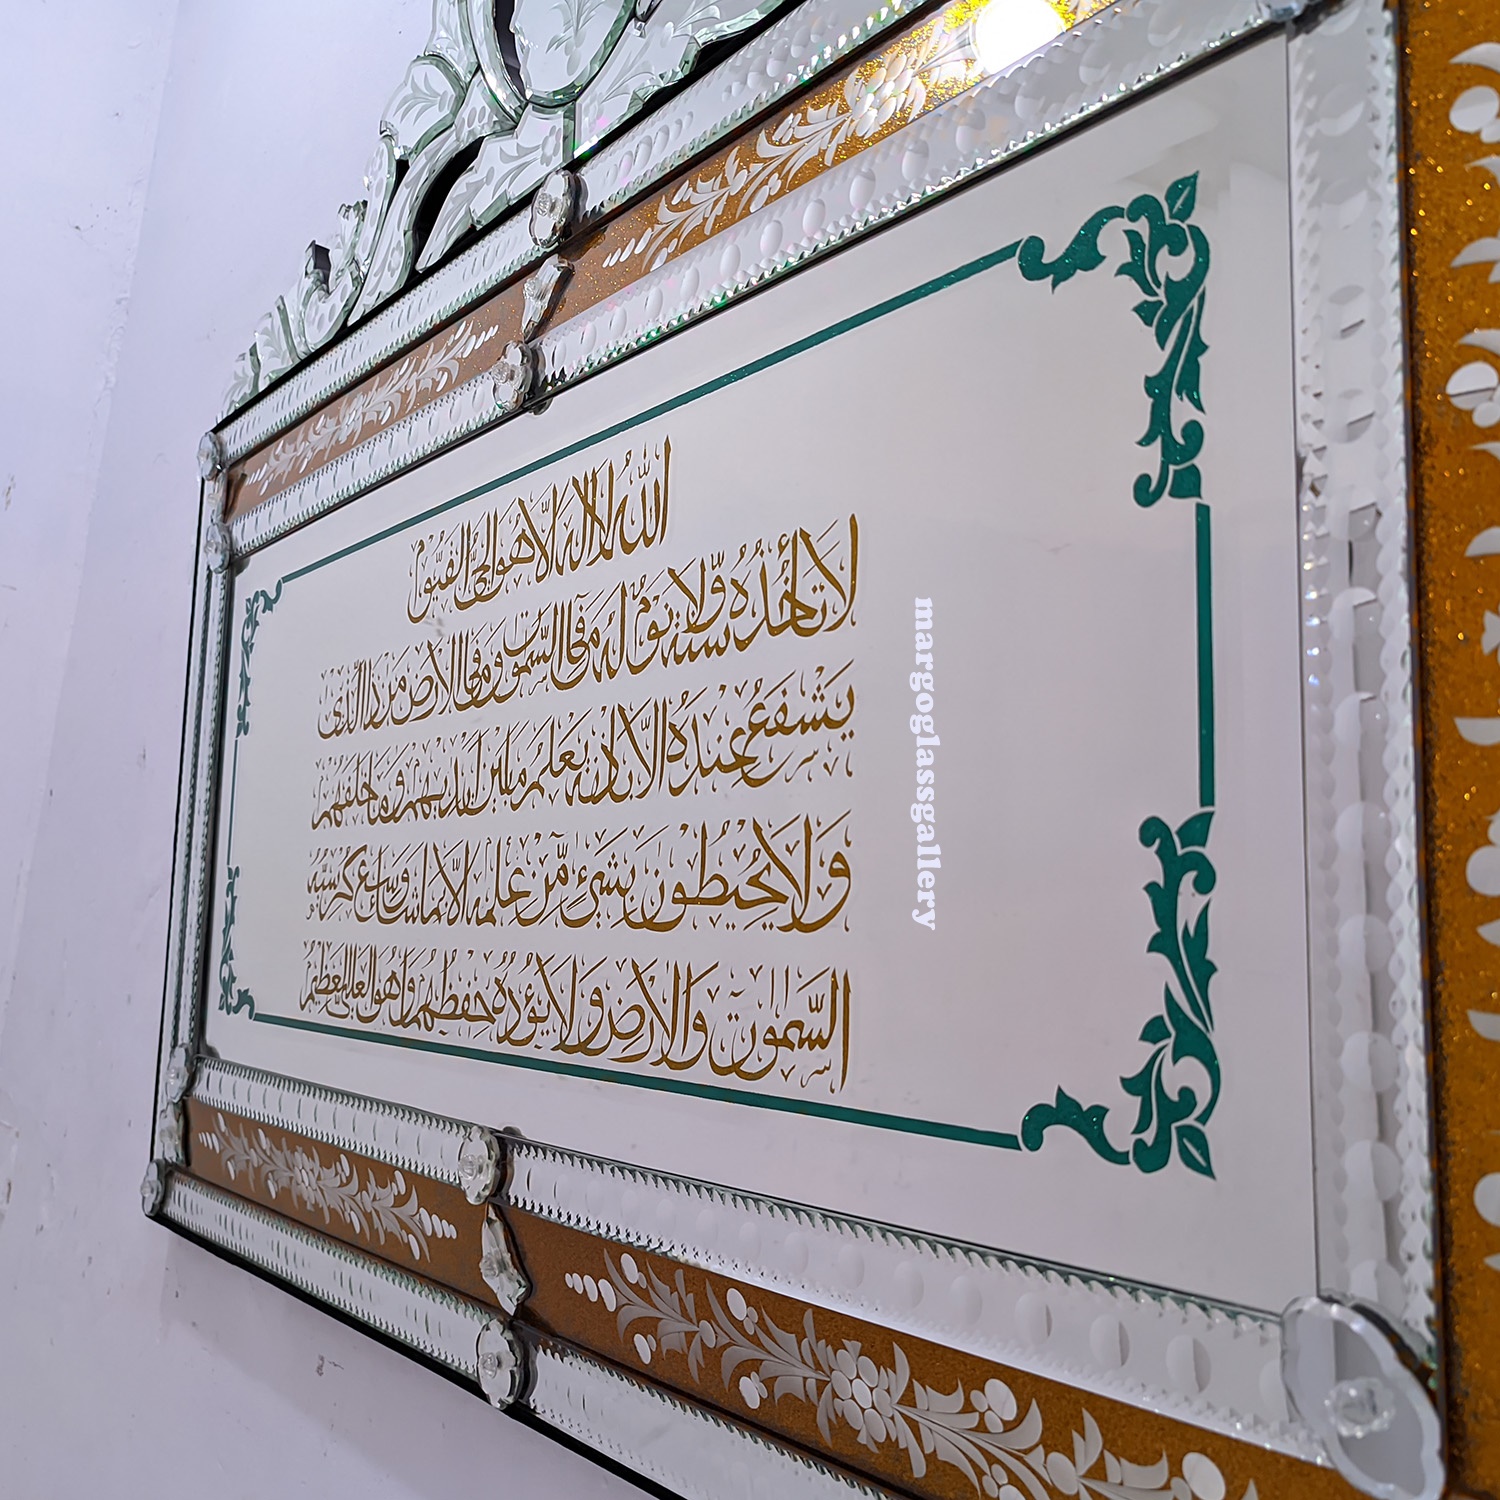 اللّٰهُ لَا اِلٰهَ اِلَّا هُوَ الْحَيُّ الْقَيُّوْمُ
لَا تَأْخُذُهٗ سِنَةٌ وَّلَا نَوْمٌ لَهٗ مَا فِي السَّمٰوٰتِ وَمَا فِي الْاَرْضِ مَنْ ذَا الَّذِيْ
يَشْفَعُ عِنْدَهٗ اِلَّا بِاِذْنِهٖ يَعْلَمُ مَا بَيْنَ اَيْدِيْهِمْ وَمَا خَلْفَهُمْ
وَلَا يُحِيْطُوْنَ بِشَيْءٍ مِّنْ عِلْمِهٖ اِلَّا بِمَا شَاءَ وَسِعَ كُرْسِيُّهُ
السَّمٰوٰتِ وَالْاَرْضَ وَلَا يَئُوْدُهٗ حِفْظُهُمَا وَهُوَ الْعَلِيُّ الْعَظِيْمُ
margoglassgallery